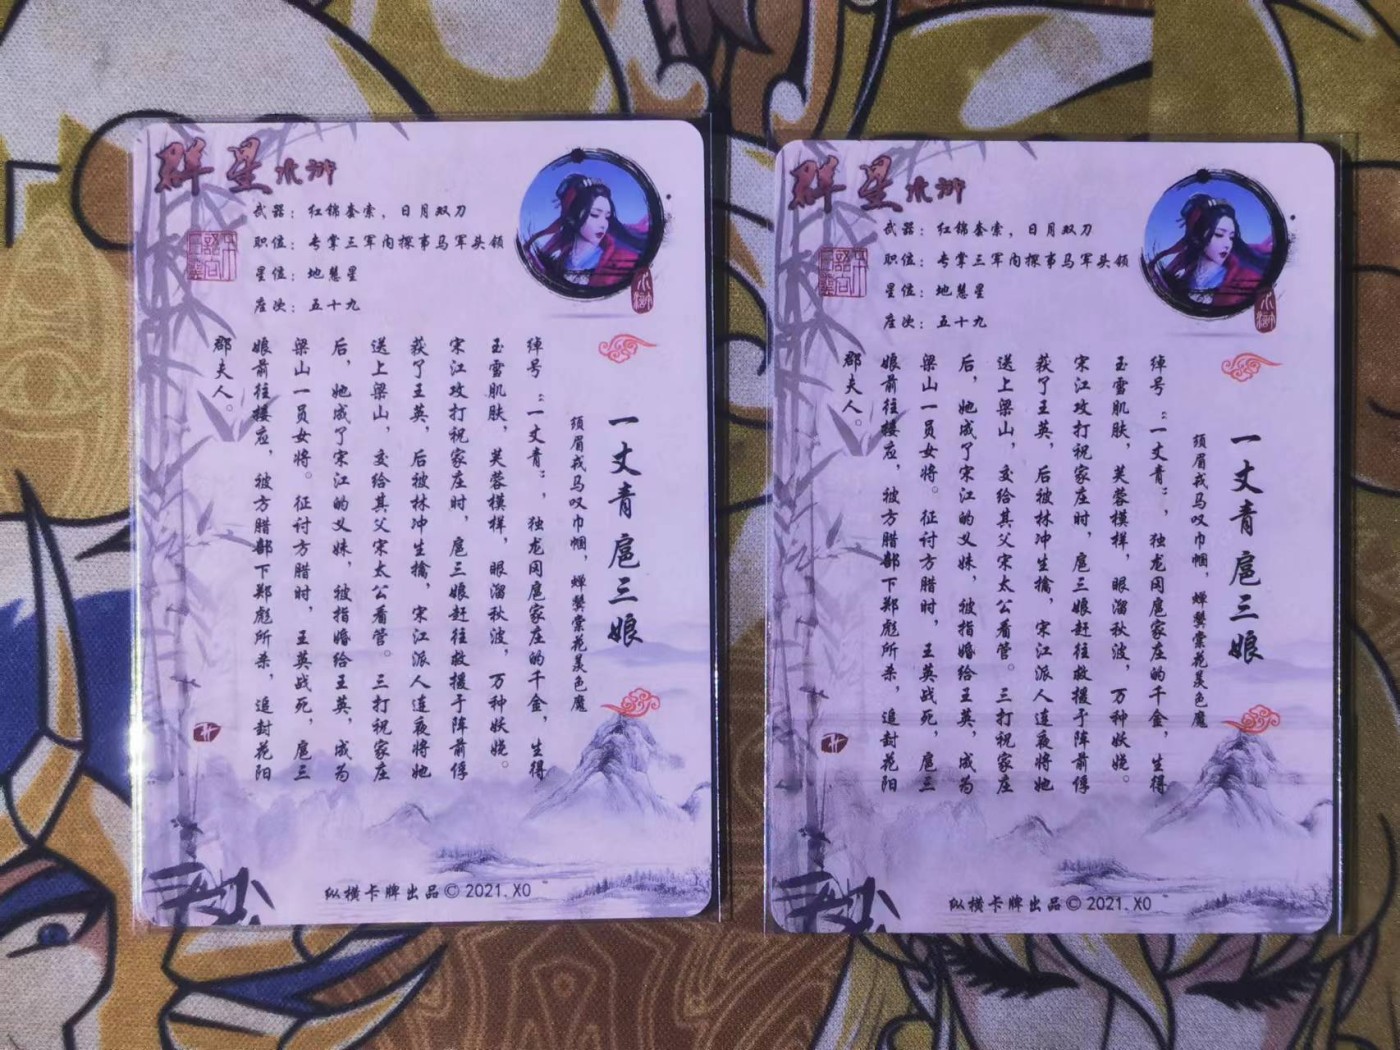 群星水浒
武器：红锦套索，日月双刀
职位：专掌三军内探事马军头领
星位：地慧星
座次：五十九
水浒
一丈青 扈三娘
须眉戎马叹巾帼，蝉鬓棠花炅色魔
绰号“一丈青”，独龙岡扈家庄的千金，生得
玉雪肌肤，芙蓉模样，眼溜秋波，万种妖娆。
宋江攻打祝家庄时，扈三娘赶往救援于阵前俘
获了王英，后被林冲生擒，宋江派人连夜将她
送上梁山，交给其父宋太公看管。三打祝家庄
后，她成了宋江的义妹，被指婚给王英，成为
梁山一员女将。征讨方腊时，王英战死，扈三
娘前往接应，被方腊部下郑彪所杀，追封花阳
郡夫人。
纵横卡牌出品© 2021. XO
群星水浒
武器：红锦套索，日月双刀
职位：专掌三军内探事马军头领
星位：地慧星
座次：五十九
水浒
一丈青 扈三娘
须眉戎马叹巾帼，蝉鬓棠花炅色魔
绰号“一丈青”，独龙岡扈家庄的千金，生得
玉雪肌肤，芙蓉模样，眼溜秋波，万种妖娆。
宋江攻打祝家庄时，扈三娘赶往救援于阵前俘
获了王英，后被林冲生擒，宋江派人连夜将她
送上梁山，交给其父宋太公看管。三打祝家庄
后，她成了宋江的义妹，被指婚给王英，成为
梁山一员女将。征讨方腊时，王英战死，扈三
娘前往接应，被方腊部下郑彪所杀，追封花阳
郡夫人。
纵横卡牌出品© 2021. XO